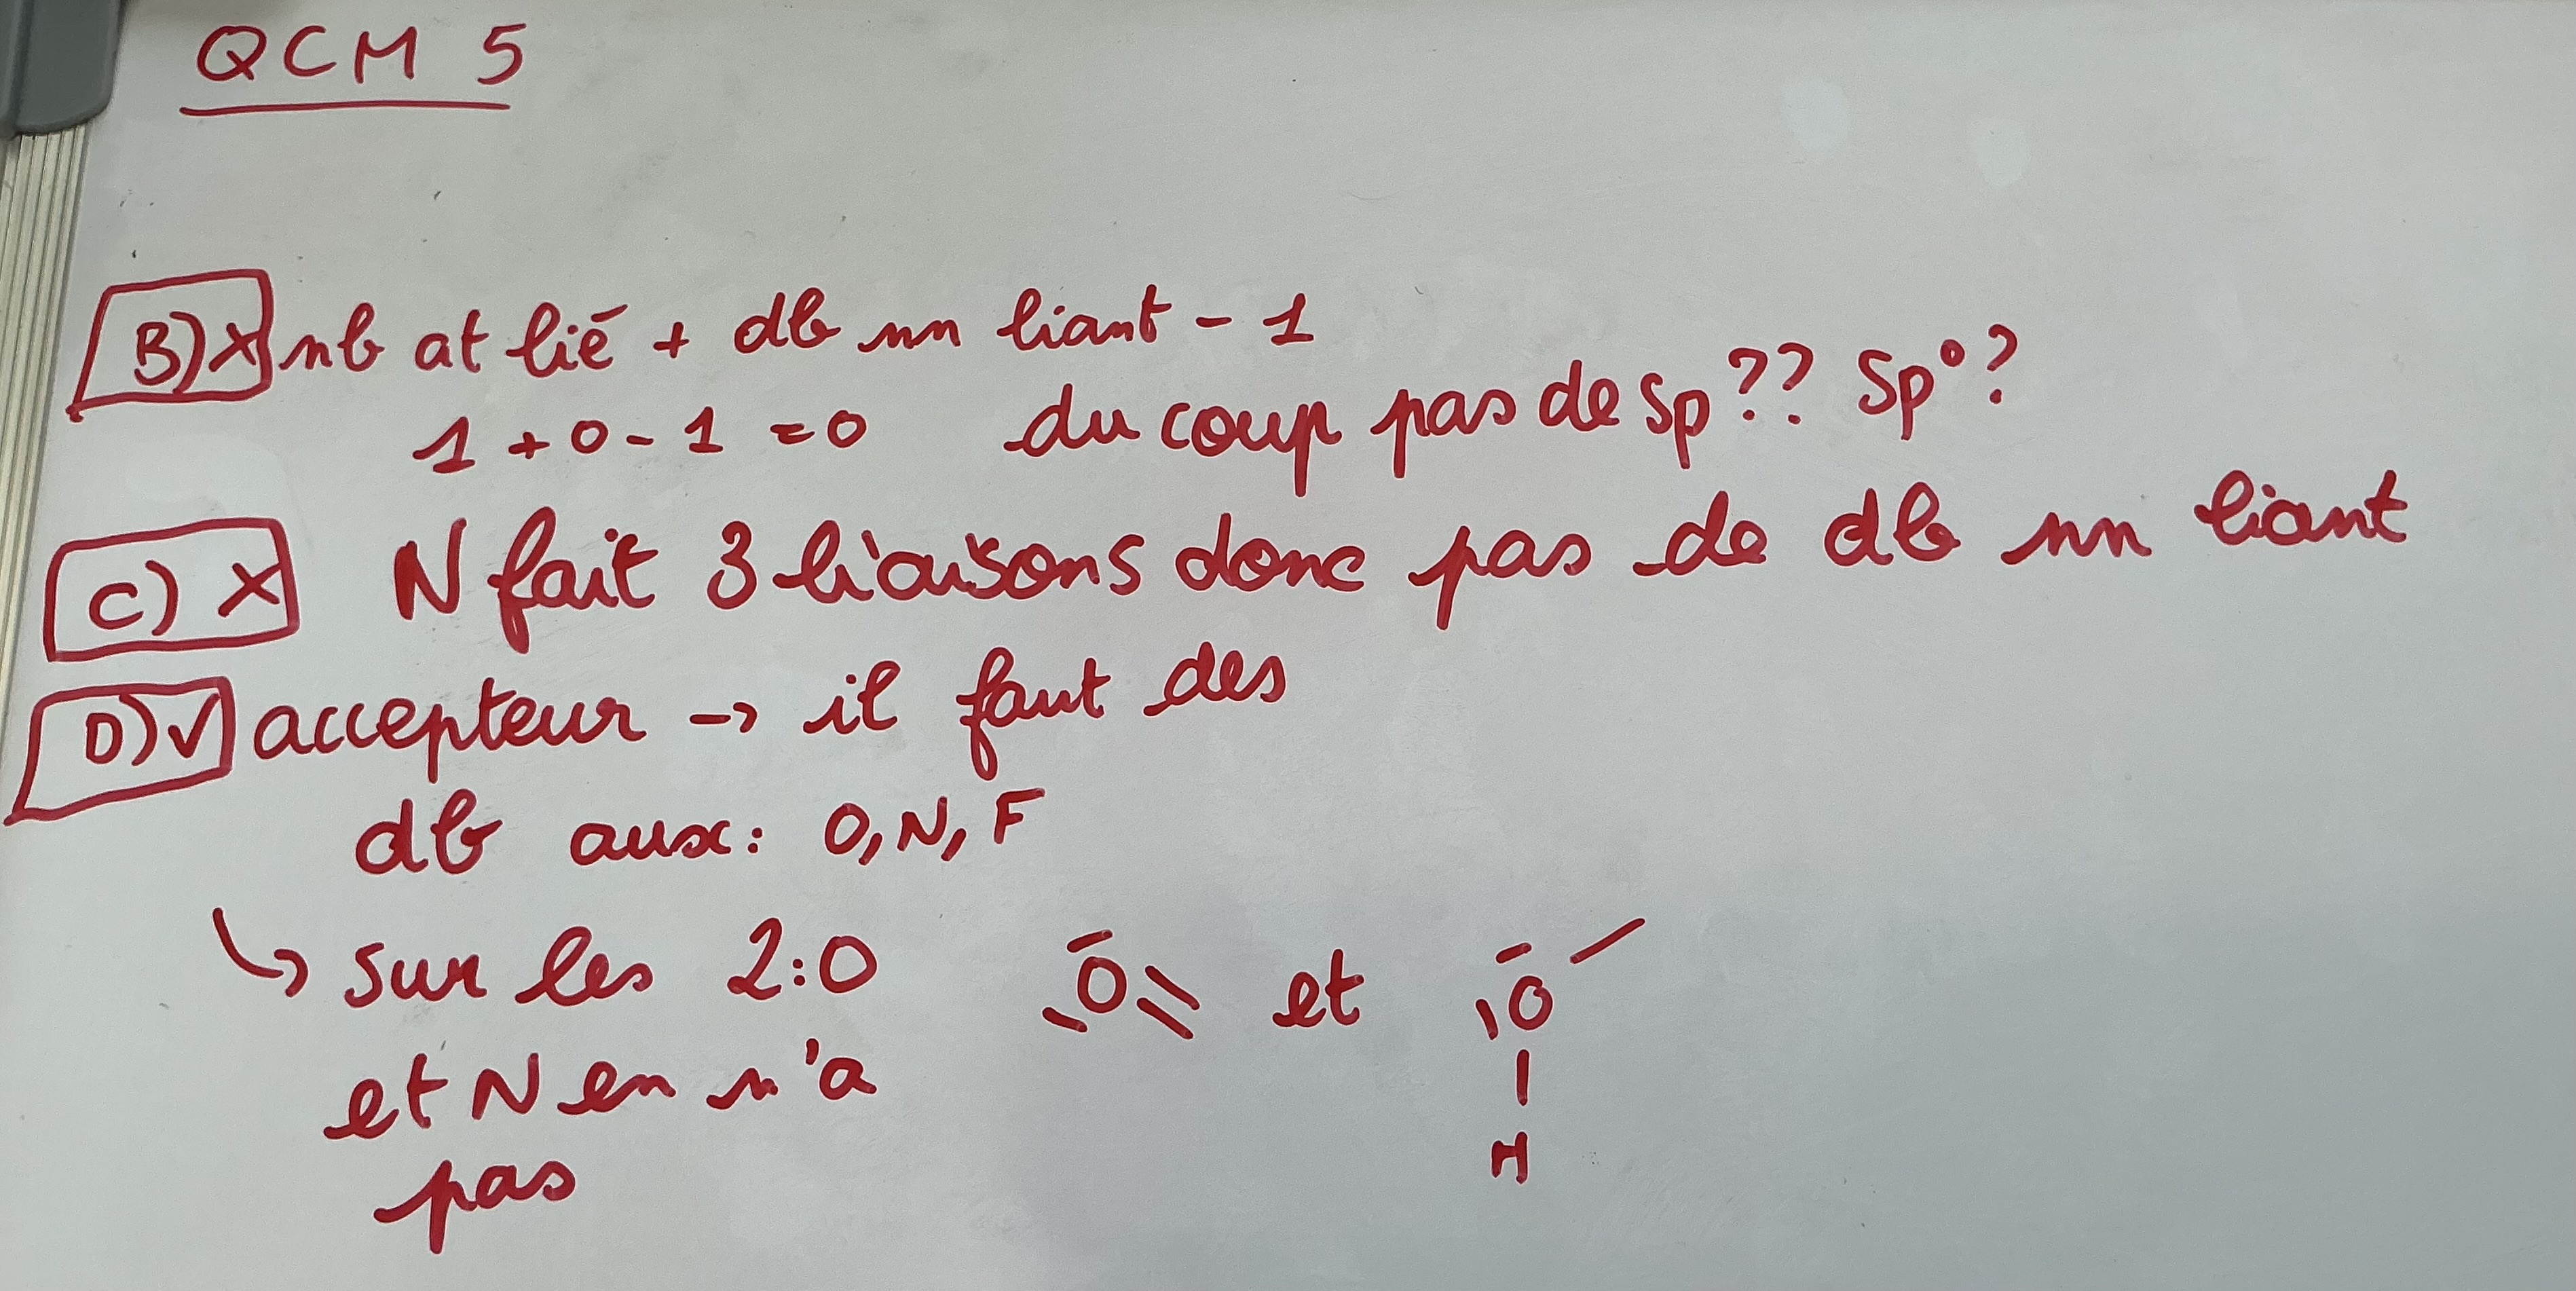 QCM 5
B) X nb at lié + db nn liant - 1
1 + 0 - 1 = 0 du coup pas de Sp?? Sp⁰?
C) X N fait 3 liaisons donc pas de db nn liant
D) √ accepteur → il faut des
db aux: O, N, F
↳ sur les 2:O O et O
et N en n'a
H
pas